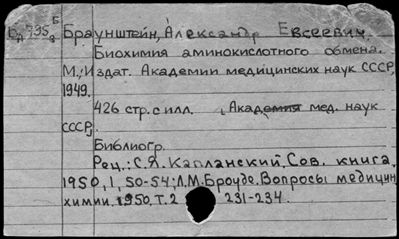 Браунштейн, Александр Евсеевич.
Биохимия аминокислотного обмена.
М., Издат. Академии медицинских наук СССР,
1949.
426 стр. с илл. (Академия мед. наук
СССР).
Библиогр.
Рец.: С.Я. Капланский. Сов. книга,
1950, 1, 50-54; Л.М. Броуде. Вопросы медицин.
химии. 1950, т. 2 231-234.